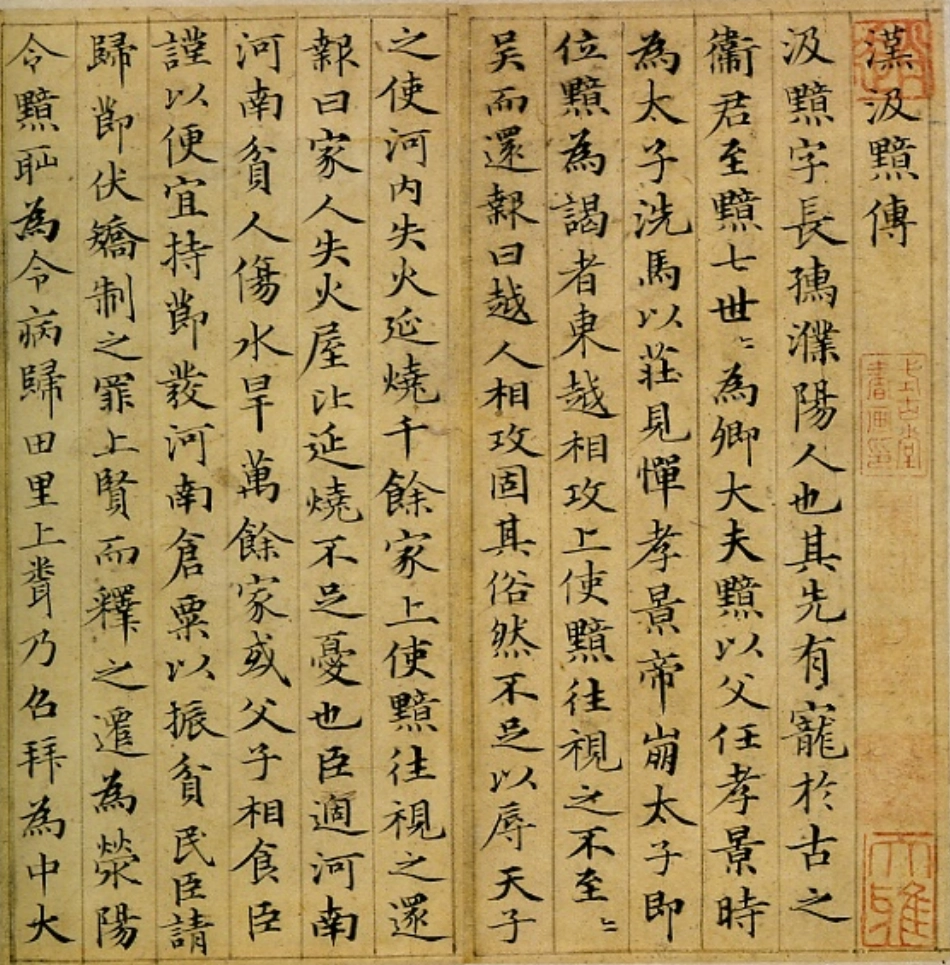 漢汲黯傳
汲黯字長孺濮陽人也其先有寵於古之
衛君至黯七世〻為卿大夫黯以父任孝景時
為太子洗馬以莊見憚孝景帝崩太子即
位黯為謁者東越相攻上使黯往視之不至〻
吴而還報曰越人相攻固其俗然不足以辱天子
之使河内失火延燒千餘家上使黯往視之還
報曰家人失火屋比延燒不足憂也臣適河南
河南貧人傷水旱萬餘家或父子相食臣
謹以便宜持節發河南倉粟以振貧民臣請
歸節伏矯制之罪上賢而釋之遷為滎陽
令黯恥為令病歸田里上聞乃召拜為中大
式古堂書畫印
大雅